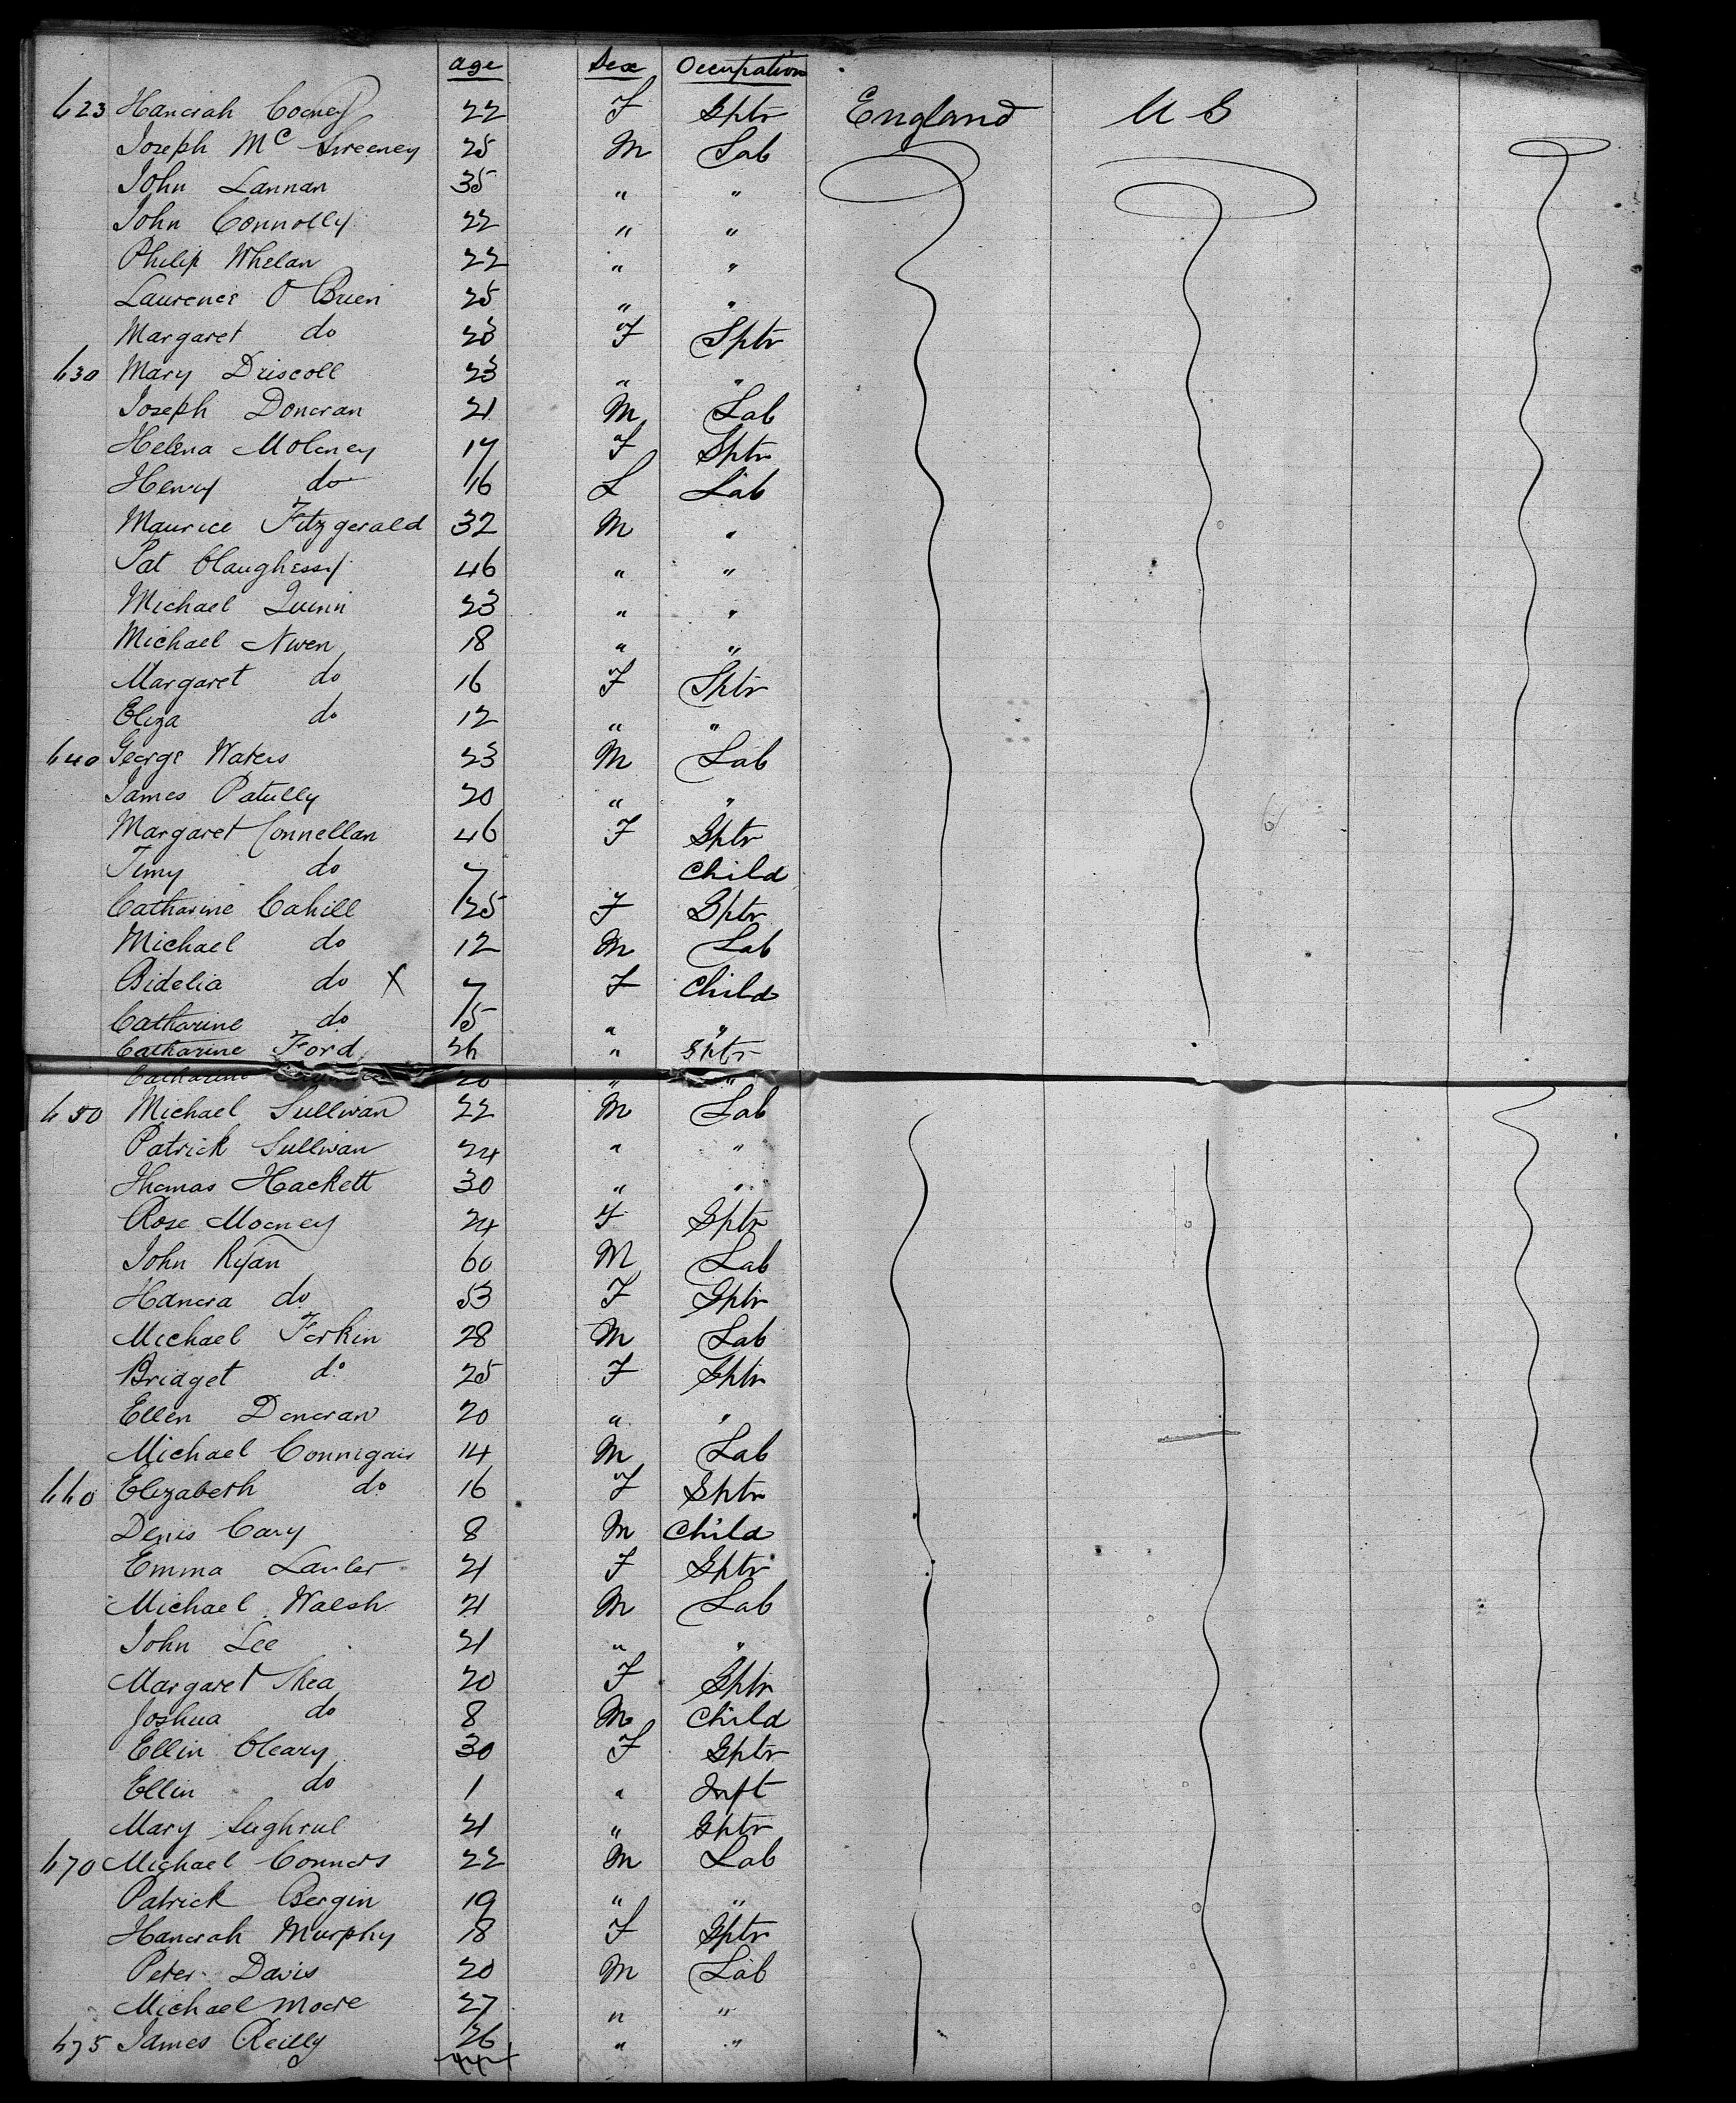 age Sex Occupation
623 Hanorah Cooney 22 F Sptr England U S
Joseph Mc Sweeney 25 M Lab
John Lannan 35 " "
John Connolly 22 " "
Philip Whelan 22 " "
Laurence O Brien 25 " "
Margaret do 23 F Sptr
630 Mary Driscoll 23 " "
Joseph Donovan 21 M Lab
Helena Moloney 17 F Sptr
Henry do 16 L Lab
Maurice Fitzgerald 32 M "
Pat Olaughessy 46 " "
Michael Quinn 23 " "
Michael Nwen 18 " "
Margaret do 16 F Sptr
Eliza do 12 " "
640 George Waters 23 M Lab
James Patully 20 " "
Margaret Connellan 46 F Sptr
Timy do 7 Child
Catharine Cahill 25 F Sptr
Michael do 12 M Lab
Bidelia do X 7 F Child
Catharine do 5 " "
Catharine Ford 26 " Sptr
Catharine 20 " "
650 Michael Sullivan 22 M Lab
Patrick Sullivan 24 " "
Thomas Hackett 30 " "
Rose Mooney 24 F Sptr
John Ryan 60 M Lab
Hanora do 53 F Sptr
Michael Forkin 28 M Lab
Bridget do 25 F Sptr
Ellen Donovan 20 " "
Michael Connigan 14 M Lab
660 Elizabeth do 16 F Sptr
Denis Cary 8 M Child
Emma Lawler 21 F Sptr
Michael Walsh 21 M Lab
John Lee 21 " "
Margaret Shea 20 F Sptr
Joshua do 8 M Child
Ellin Oleary 30 F Sptr
Ellin do 1 " Inft
Mary Sughrul 21 " Sptr
670 Michael Connors 22 M Lab
Patrick Bergin 19 " "
Hanorah Murphy 18 F Sptr
Peter Davis 20 M Lab
Michael Moore 27 " "
675 James Reilly 26 " "